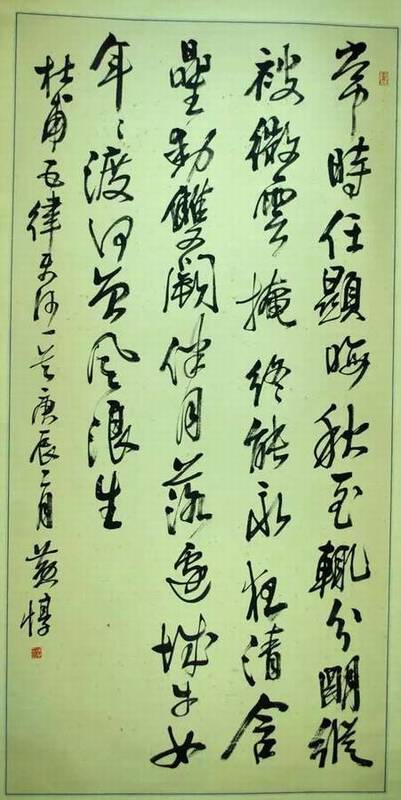 常時任顯晦秋至輒分明縱
被微雲掩終能永夜清含
星動雙闕伴月落邊城牛女
年々渡何曾風浪生
杜甫五律天河一首庚辰二月 惇